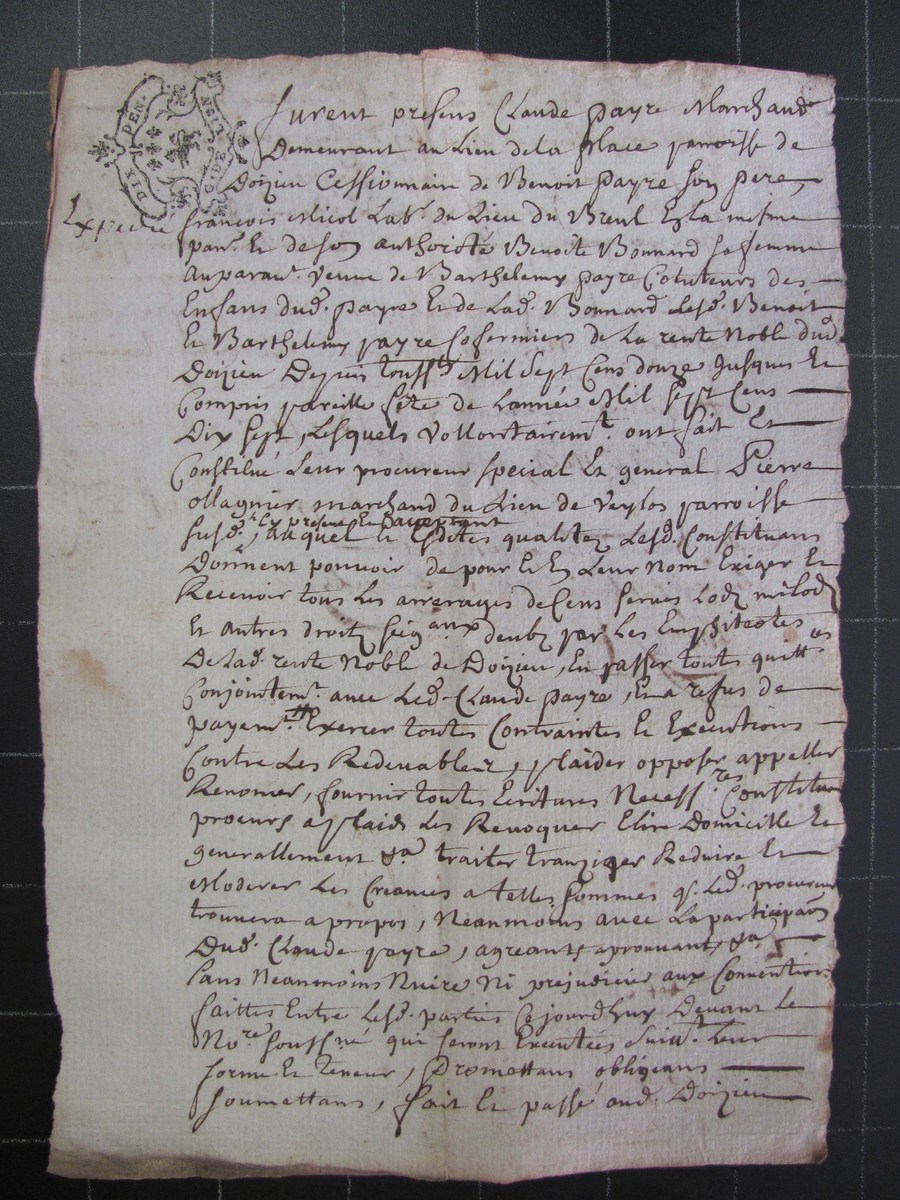 DIX PEN. LION G. DE
furent presens Claude payre Marchand
Demeurant au Lieu de la place parroisse de
Doizieu Cessionnaire de Benoit payre son pere,
Expedié
francois Nicol Lab.r du Lieu du Breul En la mesme
par.se Et de son authorité Benoite Bonnard sa femme
Auparav.t veuve de Barthelemy payre Cotuteurs des
Enfans dud. payre Et de Lad. Bonnard Lesd. Benoit
Et Barthelemy payre sofermiers de La rente Noble dud.
Doizieu Depuis Touss.ts Mil Sept Cens douze Jusques Et
Compris pareille feste de Lannée Mil Sept Cens
Dix Sept, Lesquels Vollontairem.t ont fait Et
Constitué Leur procureur special Et general Pierre
ollagnier marchand du Lieu de Veylos parroisse
susd. Ey presens Et acceptant
, auquel Et Esdites qualitez Lesd. Constituans
Donnent pouvoir de pour Et En Leur Nom Exiger Et
Recevoir tous Les arrerages de Cens servis Lodz milodz
Et autres droitz seig.aux deubz par Les Emphiteotes
De Lad. rente Noble de Doizieu, En passer toutes quitt.es
Conjointem.t avec Led. Claude payre, Et a refus de
payem.t Exercer toutes Contraintes Et Executions
Contre Les Redevables, plaider opposer appeller
Renoncer, fournir toutes Ecritures Necess.res Constituer
procurs a plaids Les Revoquer Elire Domicille Et
generallement &a traiter tranziger Reduire Et
Moderer Les Creances a telles sommes q. Led. procureur
trouvera a propos, Neanmoins avec La participaon
Dud. Claude payre, agreant, aprouvant, &a
sans Neanmoins Nuire Ni prejudicier aux Conventions
faittes Entre Lesd. parties Cejourdhuy Devant Le
No.re soussné qui seront Executées suiv.t Leur
forme Et teneur, Promettans obligeans
soumettans, fait Et passé aud. Doizieu